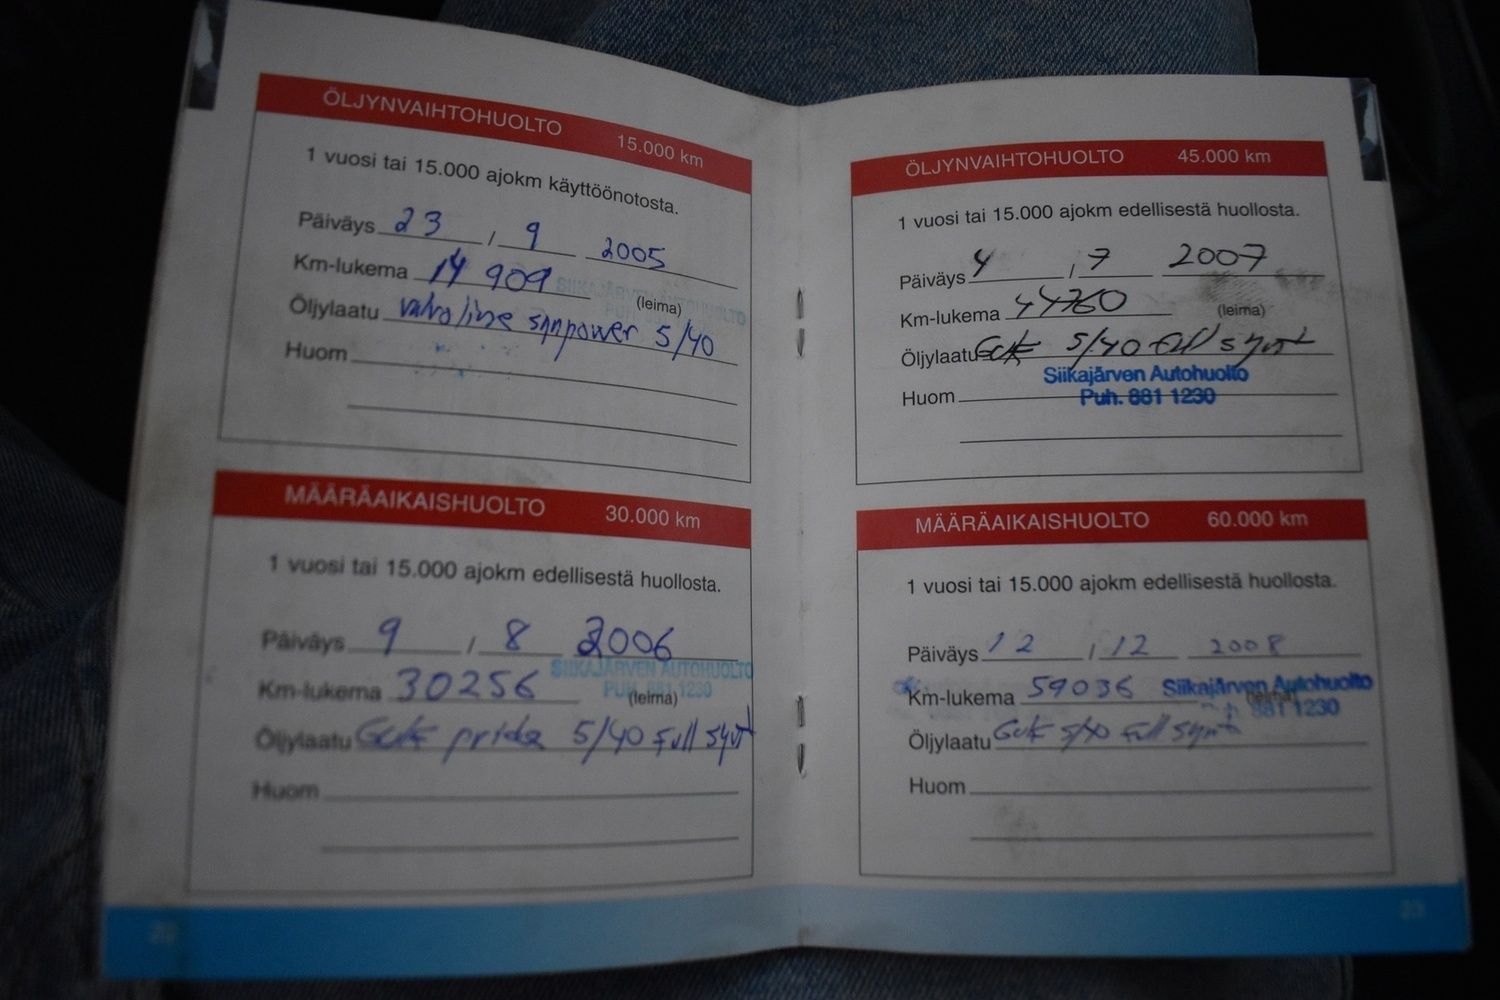 ÖLJYNVAIHTOHUOLTO 15.000 km
1 vuosi tai 15.000 ajokm käyttöönotosta.
Päiväys 23 / 9 2005
Km-lukema 14 909
SIIKAJÄRVEN AUTOHUOLTO
(leima)
Öljylaatu Valvoline synpower 5/40
Huom
MÄÄRÄAIKAISHUOLTO 30.000 km
1 vuosi tai 15.000 ajokm edellisestä huollosta.
Päiväys 9 / 8 2006
SIIKAJÄRVEN AUTOHUOLTO
Km-lukema 30256
PUH. 881 1230
(leima)
Öljylaatu 5/40 Full synt
Huom
ÖLJYNVAIHTOHUOLTO 45.000 km
1 vuosi tai 15.000 ajokm edellisestä huollosta.
Päiväys 4 / 7 2007
Km-lukema 44760 (leima)
Öljylaatu 5/40 Full synt
Siikajärven Autohuolto
Puh. 881 1230
Huom
MÄÄRÄAIKAISHUOLTO 60.000 km
1 vuosi tai 15.000 ajokm edellisestä huollosta.
Päiväys 12 / 12 2008
Km-lukema 59036 Siikajärven Autohuolto
(leima)
881 1230
Öljylaatu 5/40 Full synt
Huom